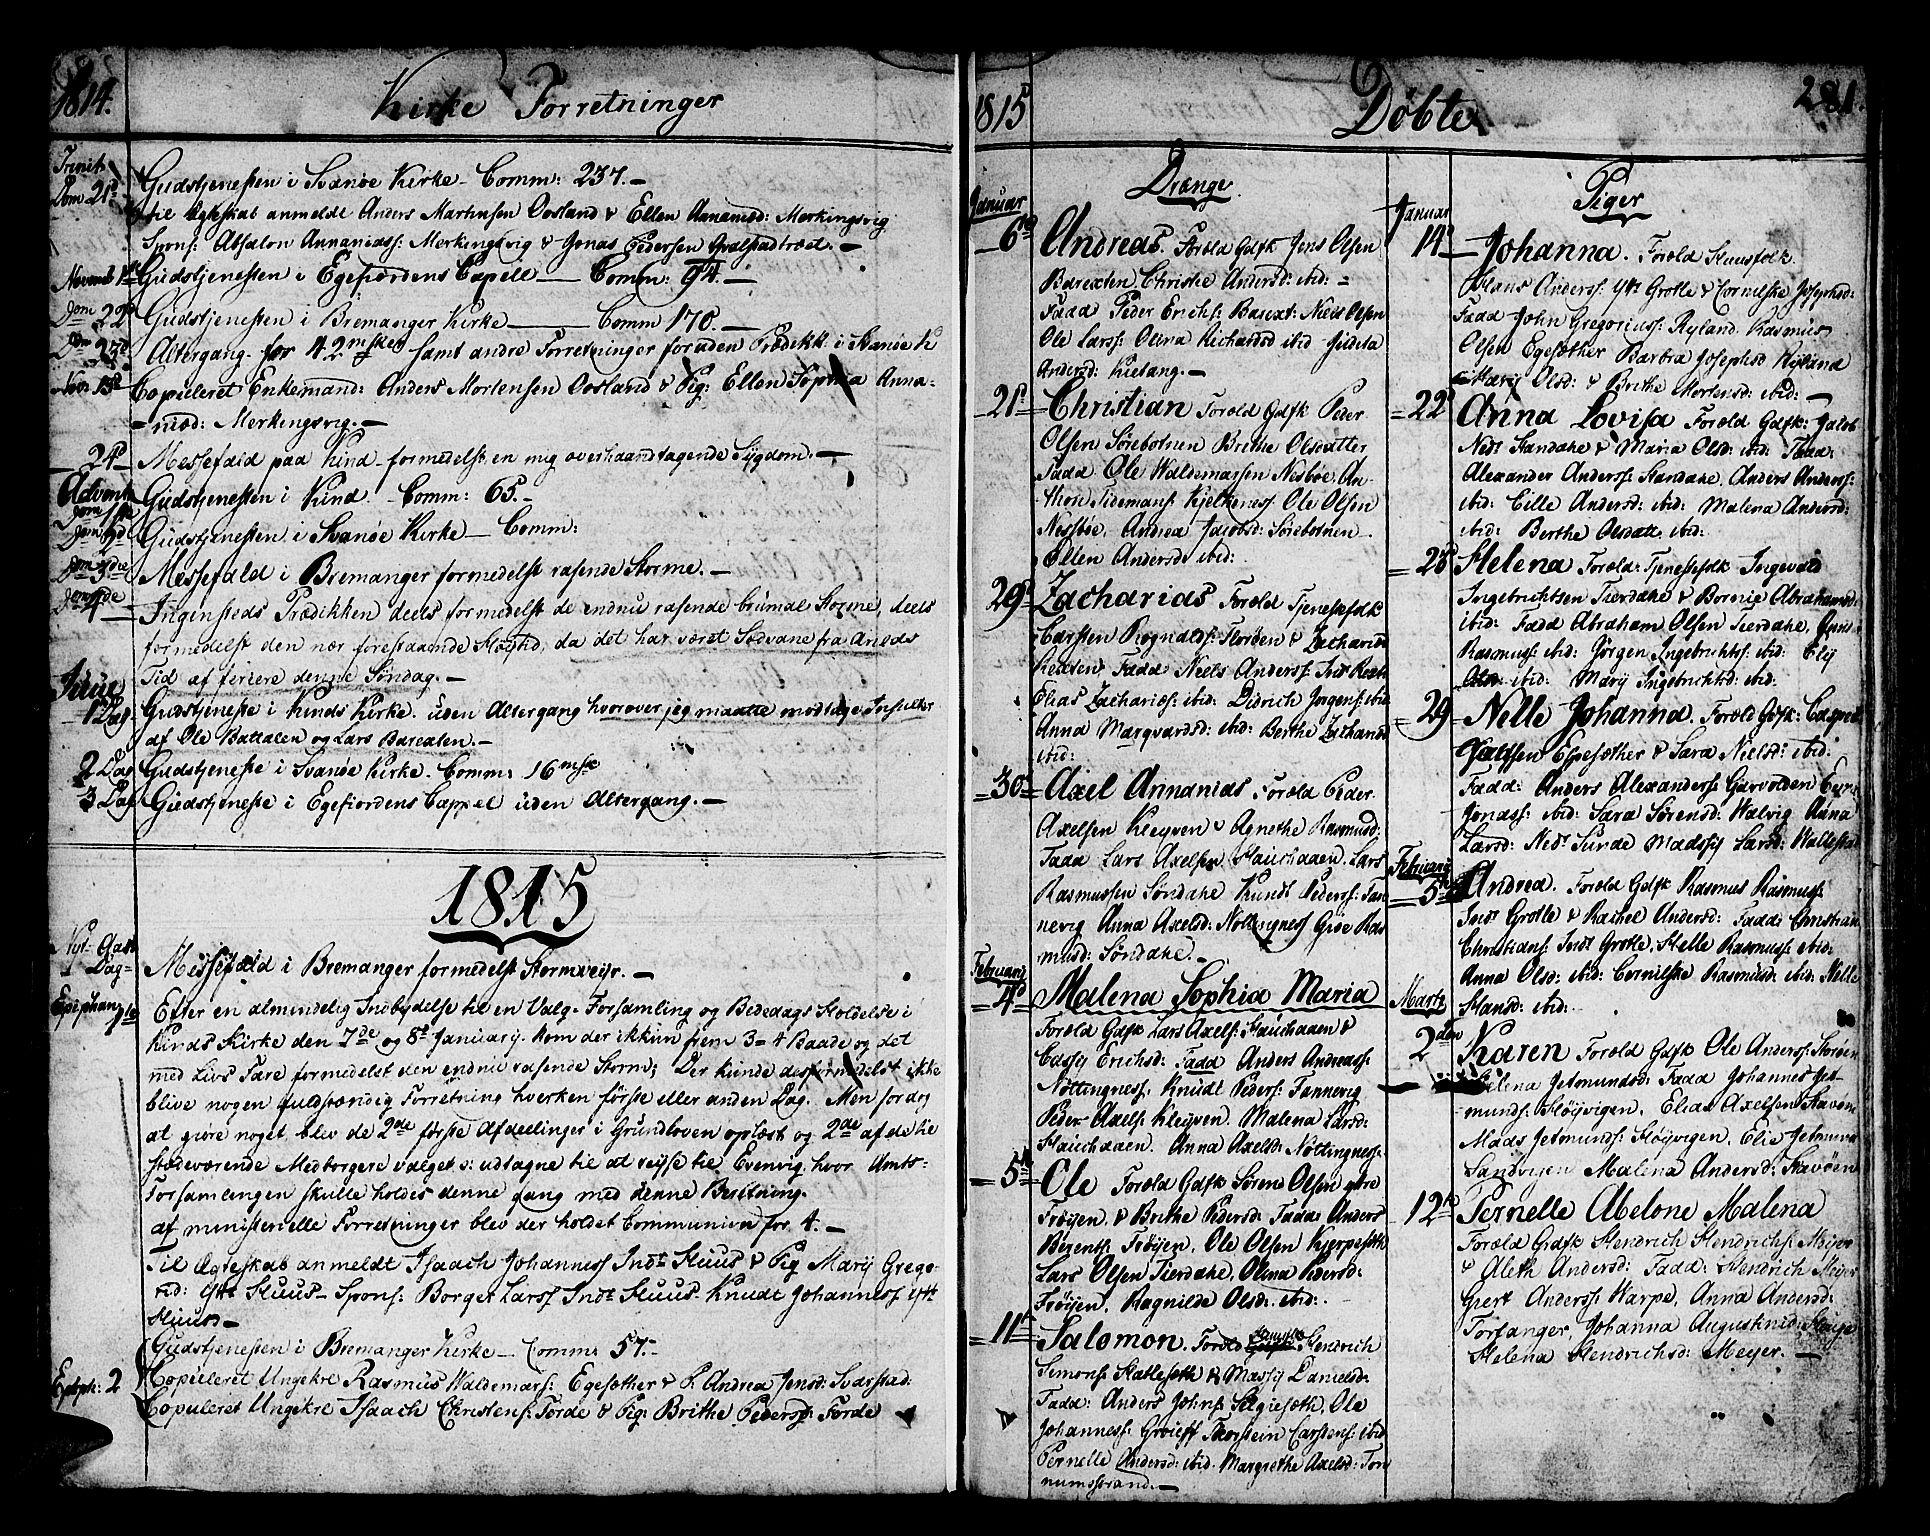 1814. Kirke Forretninger
Trinit.
Dom 21d Gudstjenesten i Svanøe Kirke – Comm: 237. –
til Egteskab anmeldt Anders Martinsen Oosland & Ellen Annanisd: Merkingsvig
Spons: Absalon Annaniass: Merkingsvig & Jonas Pedersen
Novemb 1ste Gudstjenesten i Egefiordens Capell — Comm: 94. –
Dom 22d Gudstjenesten i Bremanger Kirke — Comm 170. –
Dom 23d Altergang for 42 samt andre Forretninger foruden Prædikk i Svanøe K
Nov: 15d Copuleret Enkemand: Anders Mortensen Oosland & Pig: Ellen Sophia Anna-
niæd: Merkingsvig. –
24d Messefald paa Kind formedelst en mig overhaandtagende Sygdom. –
Advent
Dom 1ste Gudstjenesten i Kind – Comm: 65. –
Dom 2d Gudstjenesten i Svanøe Kirke – Comm:
Dom 3die Messefald i Bremanger formedelst rasende Storme. –
Dom 4de Ingensteds Prædikken deels formedelst de endnu rasende brumal Storme, deels
formedelst den nær forestaaende Høgtid, da det har været Sædvane fra Arilds
Tid af feriere denne Søndag. –
Juul
1 Dag Gudstjeneste i Kinds Kirke. uden Altergang hvorover jeg maatte modtage Insulter
af Ole Battalen og Lars Barexten. –
2 Dag Gudstjeneste i Svanøe Kirke. Comm: 16
3 Dag Gudstjeneste i Egefiordens Cappel uden Altergang. –
1815
Nyt-Aars
Dag Messefald i Bremanger formedelst Stormveyr. –
Epiphan Efter en almindelig Indbydelse til en Valg-Forsamling og Bededags Holdelse i
Kinds Kirke den 7de og 8d January. kom der ikkun frem 3 = 4 Baade og det
med Livs Fare formedelst den endnu rasende Storm; Der kunde desformedelst ikke
blive nogen fuldstændig Forretning hverken förste eller anden Dag. Men for dog
at giøre noget blev de 2de förste Afdeelinger i Grundloven oplæst og 2de af de til
stædeværende Medborgere valget o: udtagne til at reyse til Evenvig, hvor Amts-
Forsamlingen skulle holdes denne gang med denne Besitning.
af ministerielle Forretninger blev der holdet Communion for 4. –
Til Egteskab anmeldt Isaach Johanness Indt Huus & Pig Marij Grego-
rid: Ytt Huus – Spons: Borger Larss Indt Huus Knudt Johanness ytt
Huus –
Gudstjenesten i Bremanger Kirke – Comm: 57. –
Epiph: 2 Copuleret Ungekrl Rasmus Waldemars: Egesæther & P: Andrea Jensd: Svarstad:
Copuleret Ungekrl Isaach Christens: Forde & Pig: Brithe Pederss Forde
1815 Döbte 281.
Drænge
Januar
6d Andreas. Forold Gdfk Jens Olsen
Barexten Christie Andersd: ibid: –
Fadd Peder Erichs: Barext: Niels Olsen
Ole Larss: Olina Richardsd ibid Judeta
Andersd: Kietang. –
21d Christian Forold Gdfk Peder
Olsen Sörebotnen Brithe Olsdatter
Fadd Ole Waldemarsen Nesböe, An-
thon Tidemans: Ole Olsen
Nessböe, Andrea Jacobsd: Sörebotnen
Ellen Andersd: ibid:
29d Zacharias Forold Tjenestefolk
Carsten Rognalds: Floröen & Zacharisd
Rexten, Fadd Neels Anderss: Indt Rext:
Elias Zachariss: ibid: Didrich Jörgens: ibid
Anna Marqvardsd: ibid: Berthe Zacharisd
ibid:
30d Axel Annanias Forold Peder
Axelsen Kleyven & Agnethe Rasmusd:
Fadd Lars Axelsen Hauchaaen, Lars
Rasmussen Sördahe Knudt Pederss: Tan-
nevig Anna Axelsd: Nottingnes Ras
musd: Söndahe. –
Februari
4d Malena Sophia Maria
Forold Gdfk Lars Axels: Hauchaaen &
Erichsd: Fadd Anders Andreass:
Nöttingnes, Knudt Peders: Tannevig
Peder Axels: Kleyven, Malena Larsd:
Hauchaaen. Anna Axelsd: Nöttingnes:
5d Ole Forold Gdfk Sören Olsen
Fröyen, & Brithe Pedersd: Fadd: Anders
Berenth: Fröyen, Ole Olsen
Lars Olsen Tierdahe, Olina Pedersd:
Fröyen, Ragnilde Olsd: ibid:
11t Salomon, Forold Hendrich
Simons: Hatleseth & Massij Danielsd:
Fadd: Anders Johns: Ole
Johanness: Thorstein Carstens: ibid
Pernelle Andersd: ibid. Margrethe Axelsd: Ton-
numsstrand. –
Piger
Januar
14d Johanna. Forold Huusfolk
Hans Anderss: ytt Grotle & Cornilske Josephsd:
Fadd John Gregoriuss: Ryland, Rasmus
Olsen Egesæther Barbra Josephsd Ryland
Marij Olsd: & Brithe Mortensd: ibid: –
22d Anna Lovisa Forold Gdfk: Jacob
Neds Standahe & Maria Olsd: ibid: Fadd:
Alexander Anderss: Standahe, Anders Anderss:
ibid: Cille Andersd: ibid: Malena Andersd:
ibid: Berthe Olsdatt. ibid:
28d Helena Forold: Tjenestefolk Ingevald
Ingebrichtsen Tierdahe & Bornie Abrahamsd
ibid: Fadd Abraham Olsen Tierdahe,
Rasmuss: ibid: Jörgen Ingebrichts: ibid: Elij
ibid: Marij Ingebrichtsd: ibid:
29d Nelle Johanna. Forold Gdfk:
Espesæther & Sara Nielsd: ibid:
Fadd: Anders Alexanders: Gaivolden
Jonass: ibid: Sara Sörensd: Walvig Anna
Larsd: Nedt Sunde Madssij Larsd:
Februarij
5d Andrea. Forold Gdfk Rasmus Rasmus:
Indt Grotle & Rachel Andersd: Fadd: Christian
Christians: Indt Grotle, Helle Rasmuss: ibid:
Anna Olsd: ibid: Cornilske Rasmusd: ibid: Nelle
Hansd: ibid:
Marti
2den Karen Forold Gdfk Ole Anderss:
Jetmundsd: Fadd Johannes Jet-
munds: Höijvigen, Elias Axelsen
Mads Jetmunds: Höijvigen, Elie Jetmunds
Sandvigen Malena Andersd:
12d Pernelle Abelone Malena
Forold Gdfk Hendrich Hendrichs: Meyer
& Aleth Andersd: Fadd: Hendrich Meyer
Giert Anderss: Anna Andersd:
Torsanger, Johanna
Helena Hendrichsd: Meyer. –